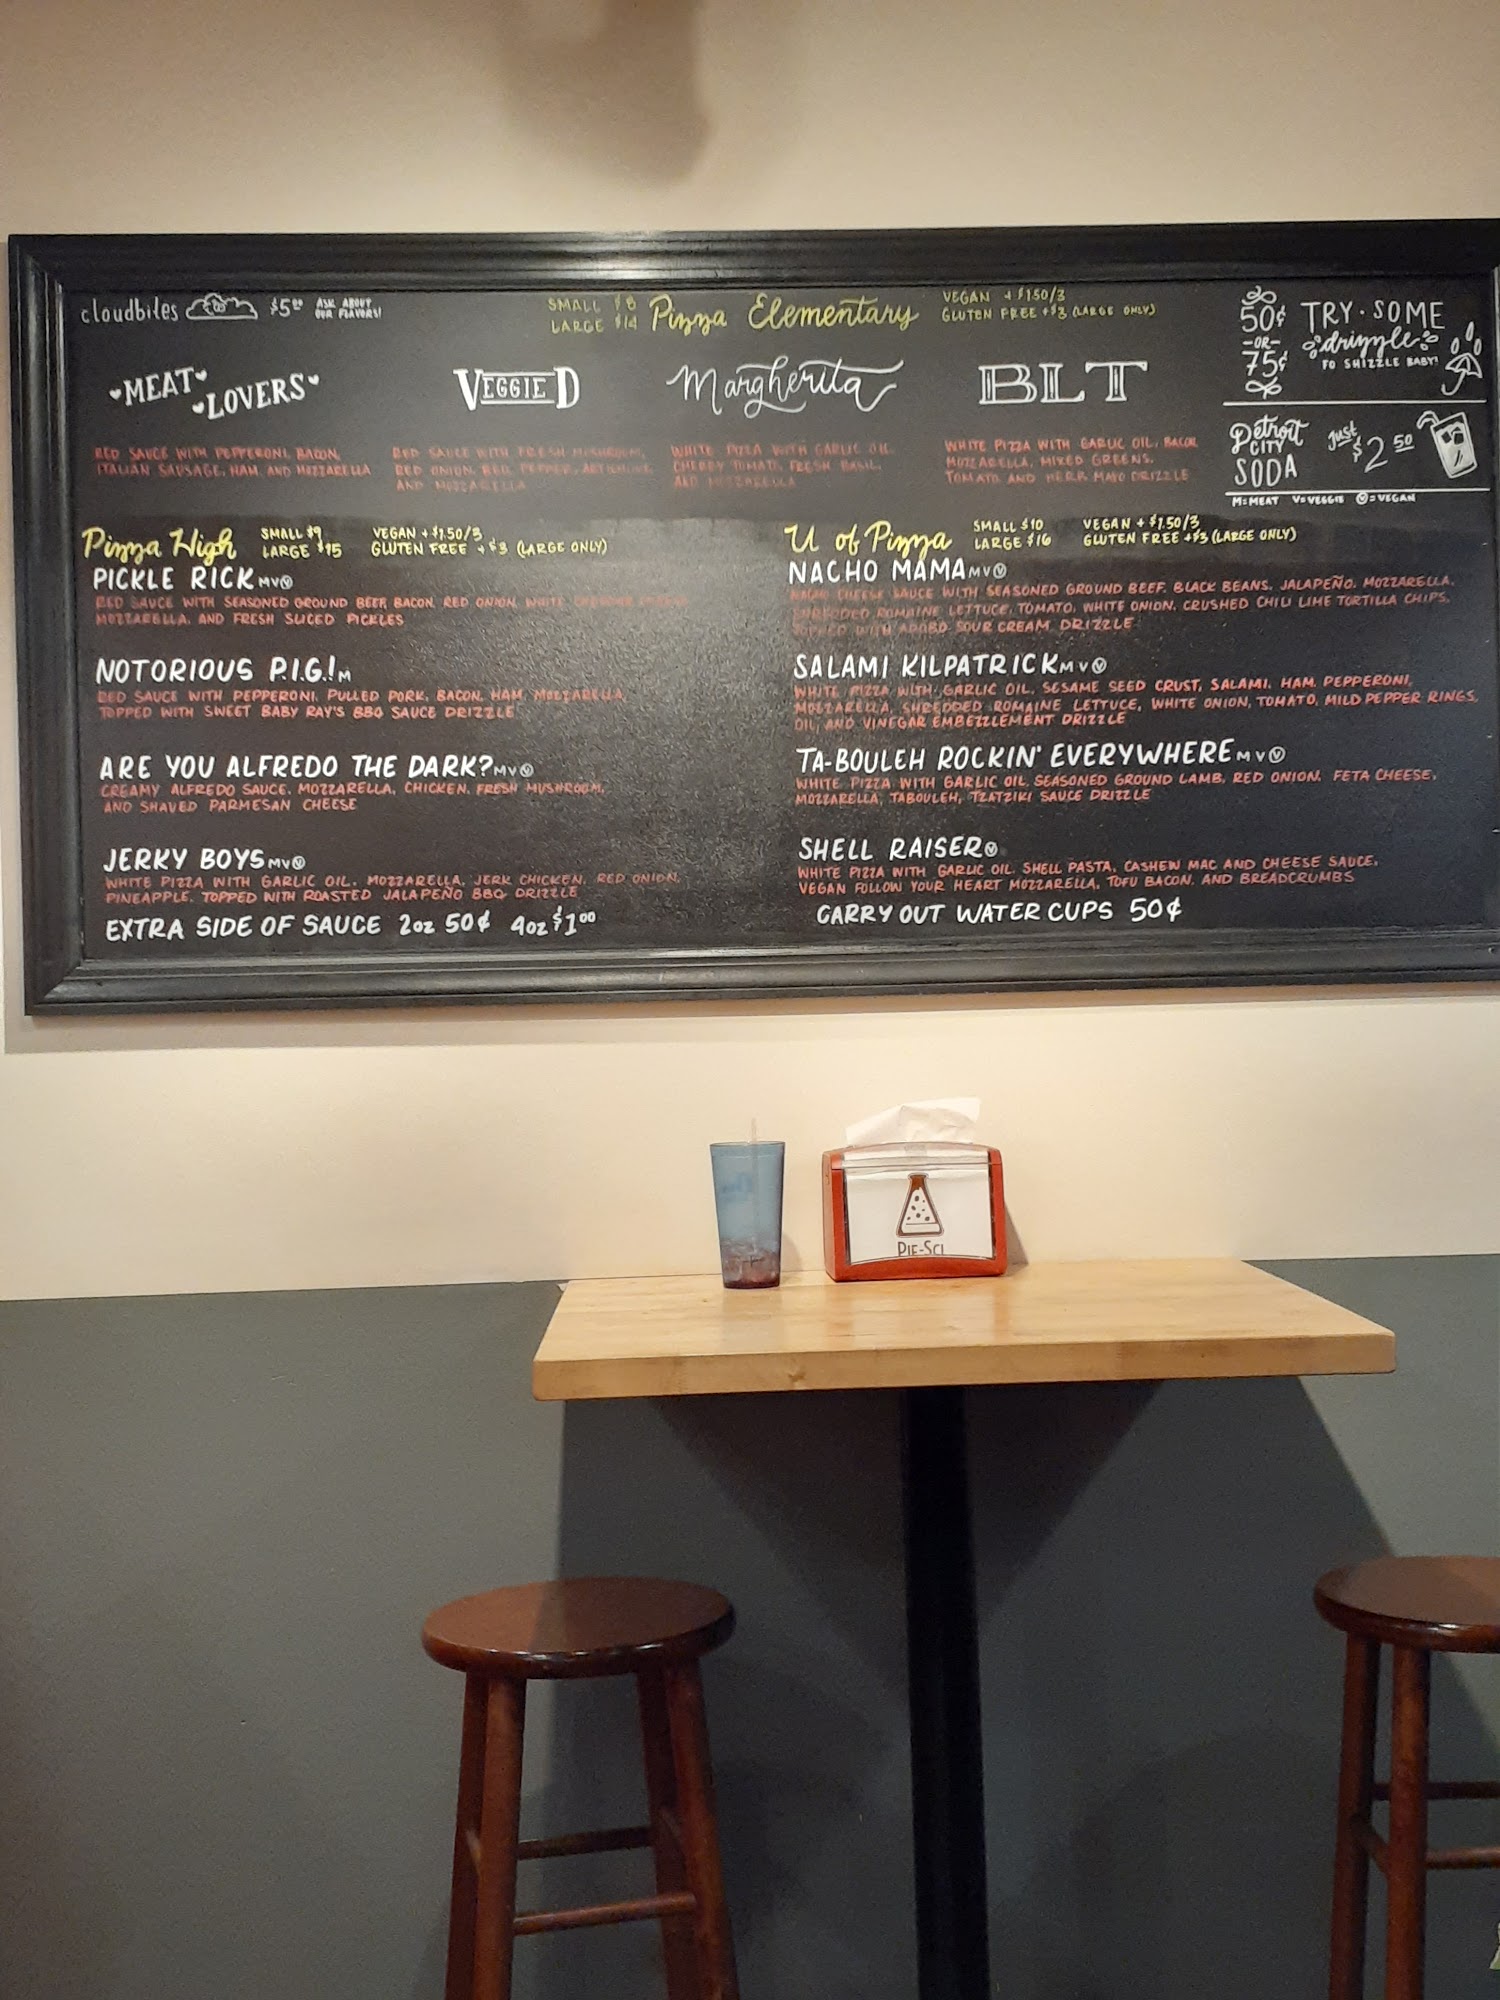 cloudbites $5.00 ASK ABOUT OUR FLAVORS!
SMALL $8
LARGE $14
Pizza Elementary
VEGAN +$1.50/3
GLUTEN FREE +$3 (LARGE ONLY)
50¢
-OR-
75¢
TRY·SOME
drizzle
FO SHIZZLE BABY!
MEAT LOVERS
RED SAUCE WITH PEPPERONI, BACON,
ITALIAN SAUSAGE, HAM, AND MOZZARELLA
VEGGIE D
RED SAUCE WITH FRESH MUSHROOM,
RED ONION, RED PEPPER, ARTICHOKE,
AND MOZZARELLA
Margherita
WHITE PIZZA WITH GARLIC OIL,
CHERRY TOMATO, FRESH BASIL,
AND MOZZARELLA
BLT
WHITE PIZZA WITH GARLIC OIL, BACON
MOZZARELLA, MIXED GREENS,
TOMATO, AND HERB MAYO DRIZZLE
Detroit
CITY
SODA
Just $2.50
M=MEAT V=VEGGIE Ⓥ=VEGAN
Pizza High
SMALL $9
LARGE $15
VEGAN +$1.50/3
GLUTEN FREE +$3 (LARGE ONLY)
PICKLE RICK M V Ⓥ
RED SAUCE WITH SEASONED GROUND BEEF, BACON, RED ONION, WHITE CHEDDAR
MOZZARELLA, AND FRESH SLICED PICKLES
NOTORIOUS P.I.G.! M
RED SAUCE WITH PEPPERONI, PULLED PORK, BACON, HAM, MOZZARELLA,
TOPPED WITH SWEET BABY RAY'S BBQ SAUCE DRIZZLE
ARE YOU ALFREDO THE DARK? M V Ⓥ
CREAMY ALFREDO SAUCE, MOZZARELLA, CHICKEN, FRESH MUSHROOM,
AND SHAVED PARMESAN CHEESE
JERKY BOYS M V Ⓥ
WHITE PIZZA WITH GARLIC OIL, MOZZARELLA, JERK CHICKEN, RED ONION,
PINEAPPLE, TOPPED WITH ROASTED JALAPEÑO BBQ DRIZZLE
EXTRA SIDE OF SAUCE 2oz 50¢ 4oz $1.00
U of Pizza
SMALL $10
LARGE $16
VEGAN +$1.50/3
GLUTEN FREE +$3 (LARGE ONLY)
NACHO MAMA M V Ⓥ
NACHO CHEESE SAUCE WITH SEASONED GROUND BEEF, BLACK BEANS, JALAPEÑO, MOZZARELLA,
SHREDDED ROMAINE LETTUCE, TOMATO, WHITE ONION, CRUSHED CHILI LIME TORTILLA CHIPS,
TOPPED WITH ADOBO SOUR CREAM DRIZZLE
SALAMI KILPATRICK M V Ⓥ
WHITE PIZZA WITH GARLIC OIL, SESAME SEED CRUST, SALAMI, HAM, PEPPERONI,
MOZZARELLA, SHREDDED ROMAINE LETTUCE, WHITE ONION, TOMATO, MILD PEPPER RINGS,
OIL, AND VINEGAR EMBEZZLEMENT DRIZZLE
TA-BOULEH ROCKIN' EVERYWHERE M V Ⓥ
WHITE PIZZA WITH GARLIC OIL, SEASONED GROUND LAMB, RED ONION, FETA CHEESE,
MOZZARELLA, TABOULEH, TZATZIKI SAUCE DRIZZLE
SHELL RAISER Ⓥ
WHITE PIZZA WITH GARLIC OIL, SHELL PASTA, CASHEW MAC AND CHEESE SAUCE,
VEGAN FOLLOW YOUR HEART MOZZARELLA, TOFU BACON, AND BREADCRUMBS
CARRY OUT WATER CUPS 50¢
PIE-SCI